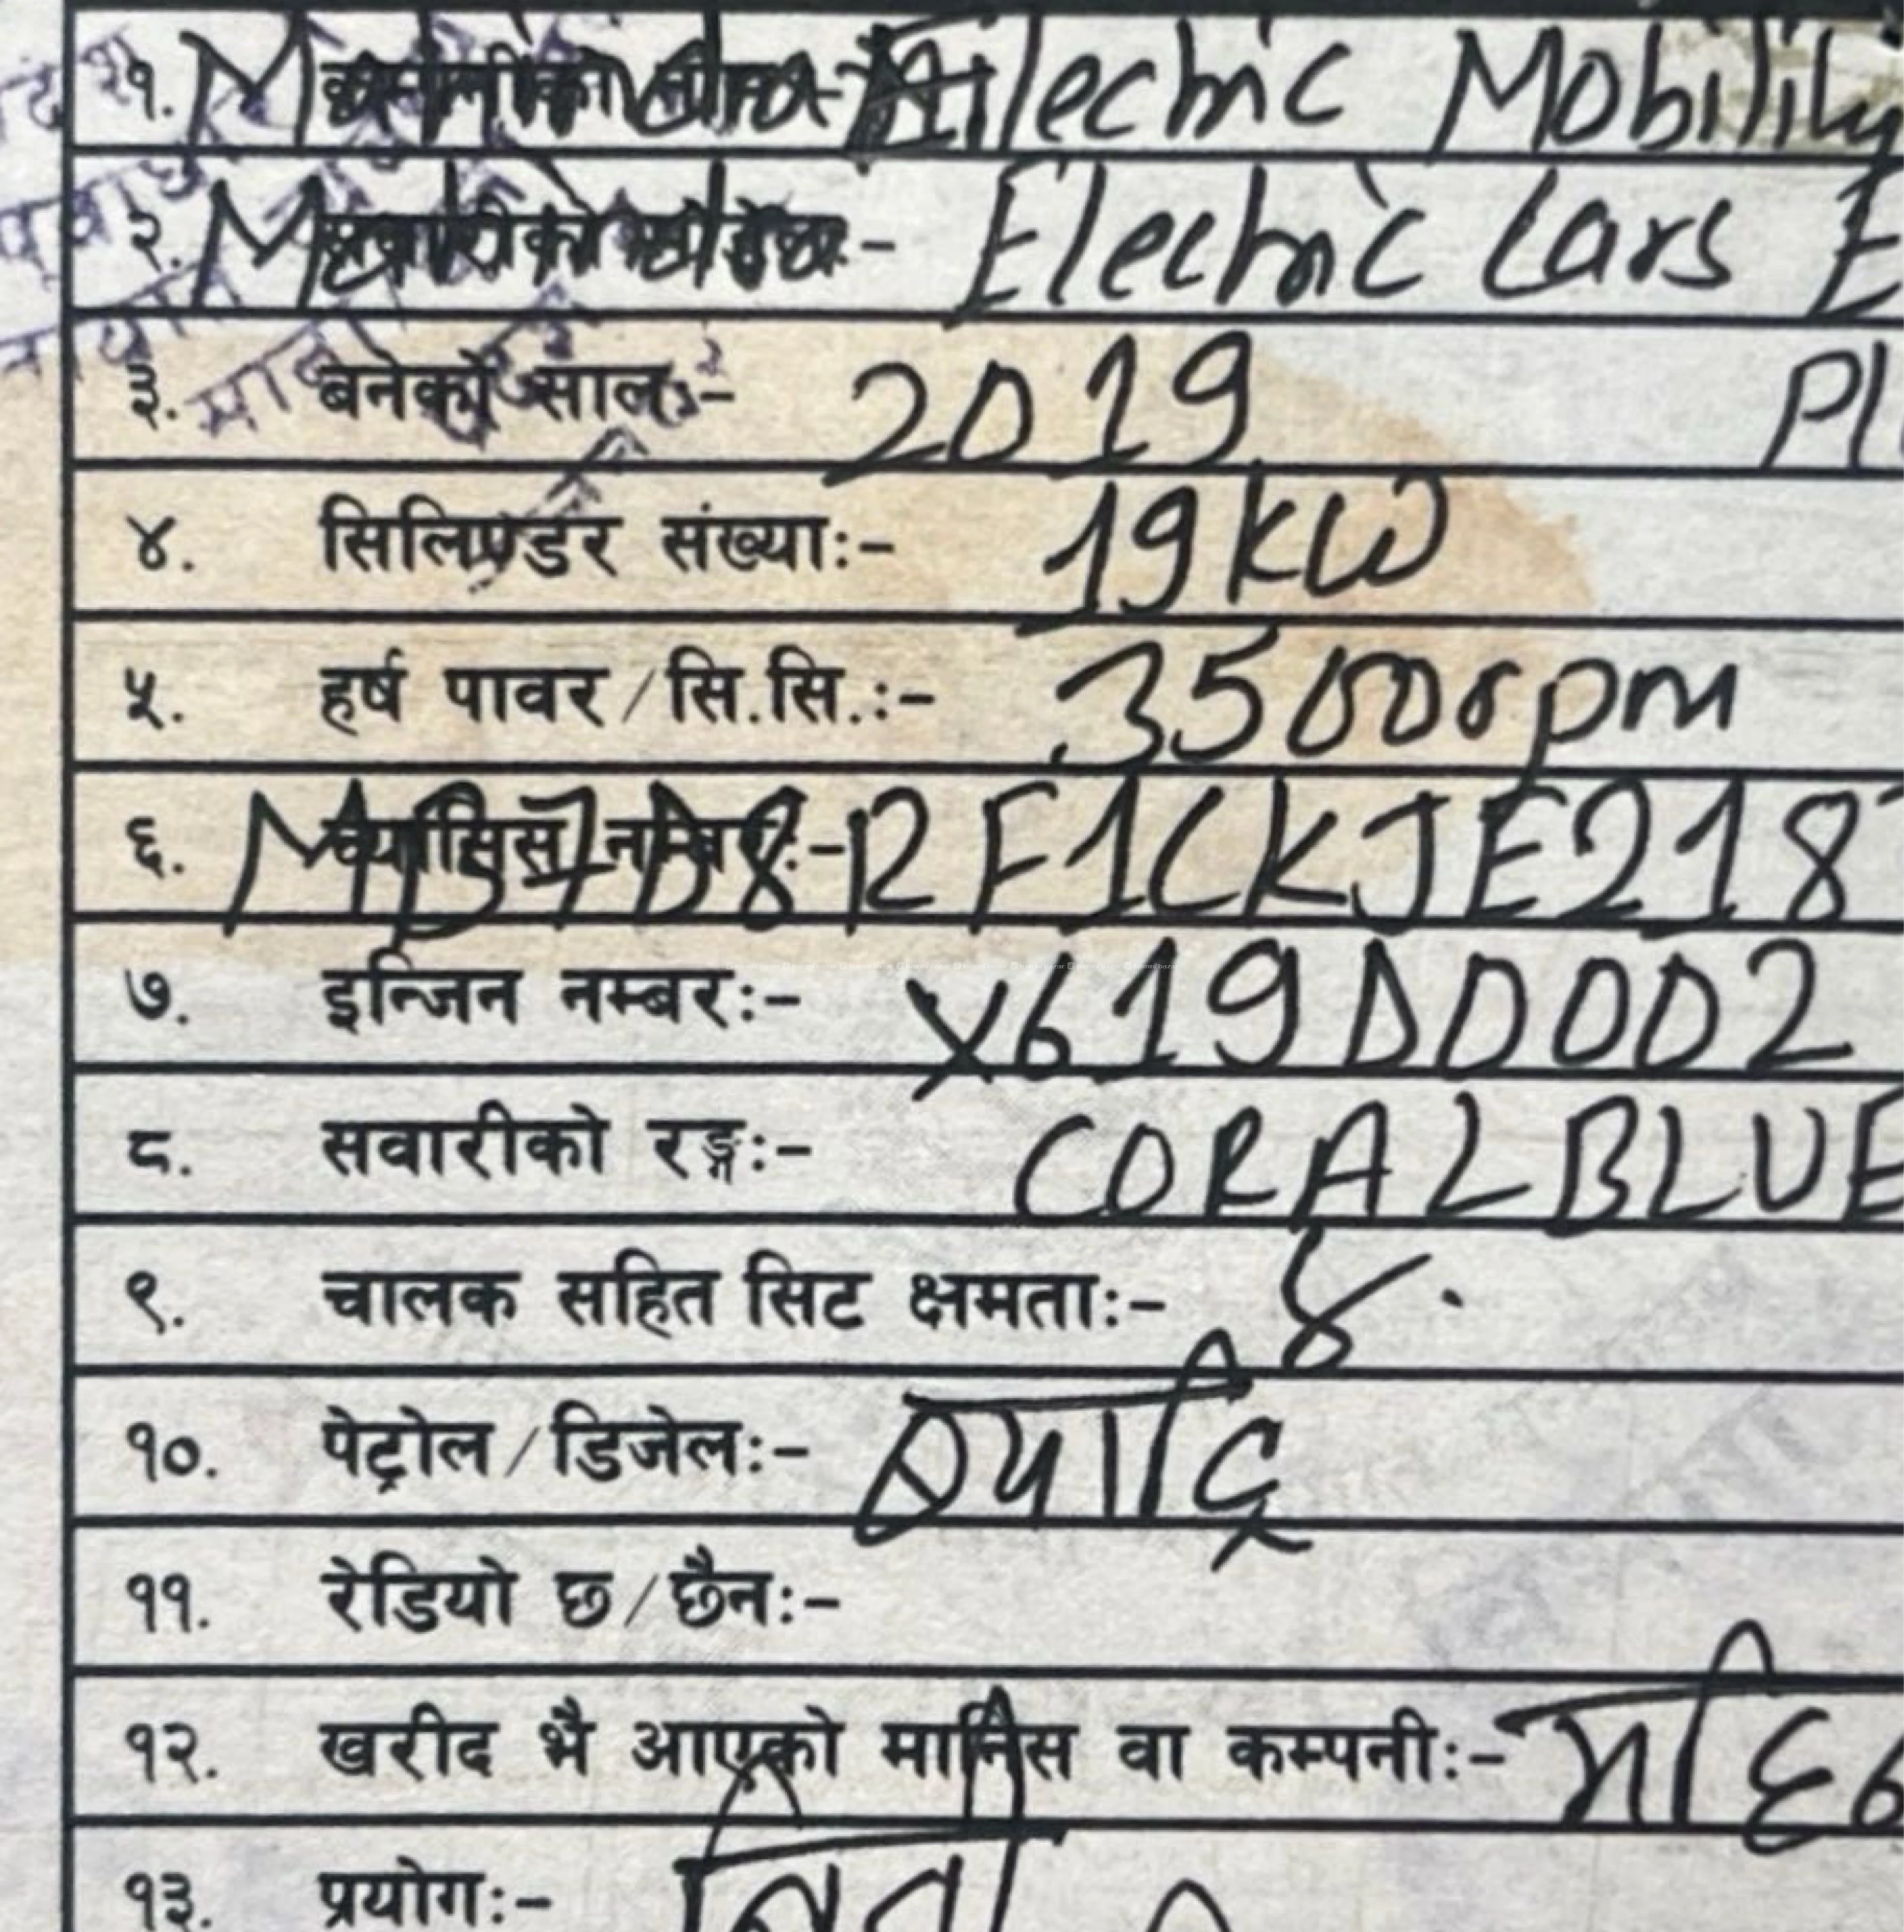 १. Mahindra Electric Mobility
२. Mahindra :- Electric Cars E
३. बनेको साल:- 2019 Pl
४. सिलिण्डर संख्या:- 19kW
५. हर्ष पावर/सि.सि.:- 3500rpm
६. च्यासिस नम्बर:- RF1CKJE218
७. इन्जिन नम्बर:- X619DD002
८. सवारीको रङ्ग:- CORALBLUE
९. चालक सहित सिट क्षमता:- ४.
१०. पेट्रोल/डिजेल:- ब्याट्रि
११. रेडियो छ/छैन:-
१२. खरीद भै आएको मानिस वा कम्पनी:- महि
१३. प्रयोग:- निजी